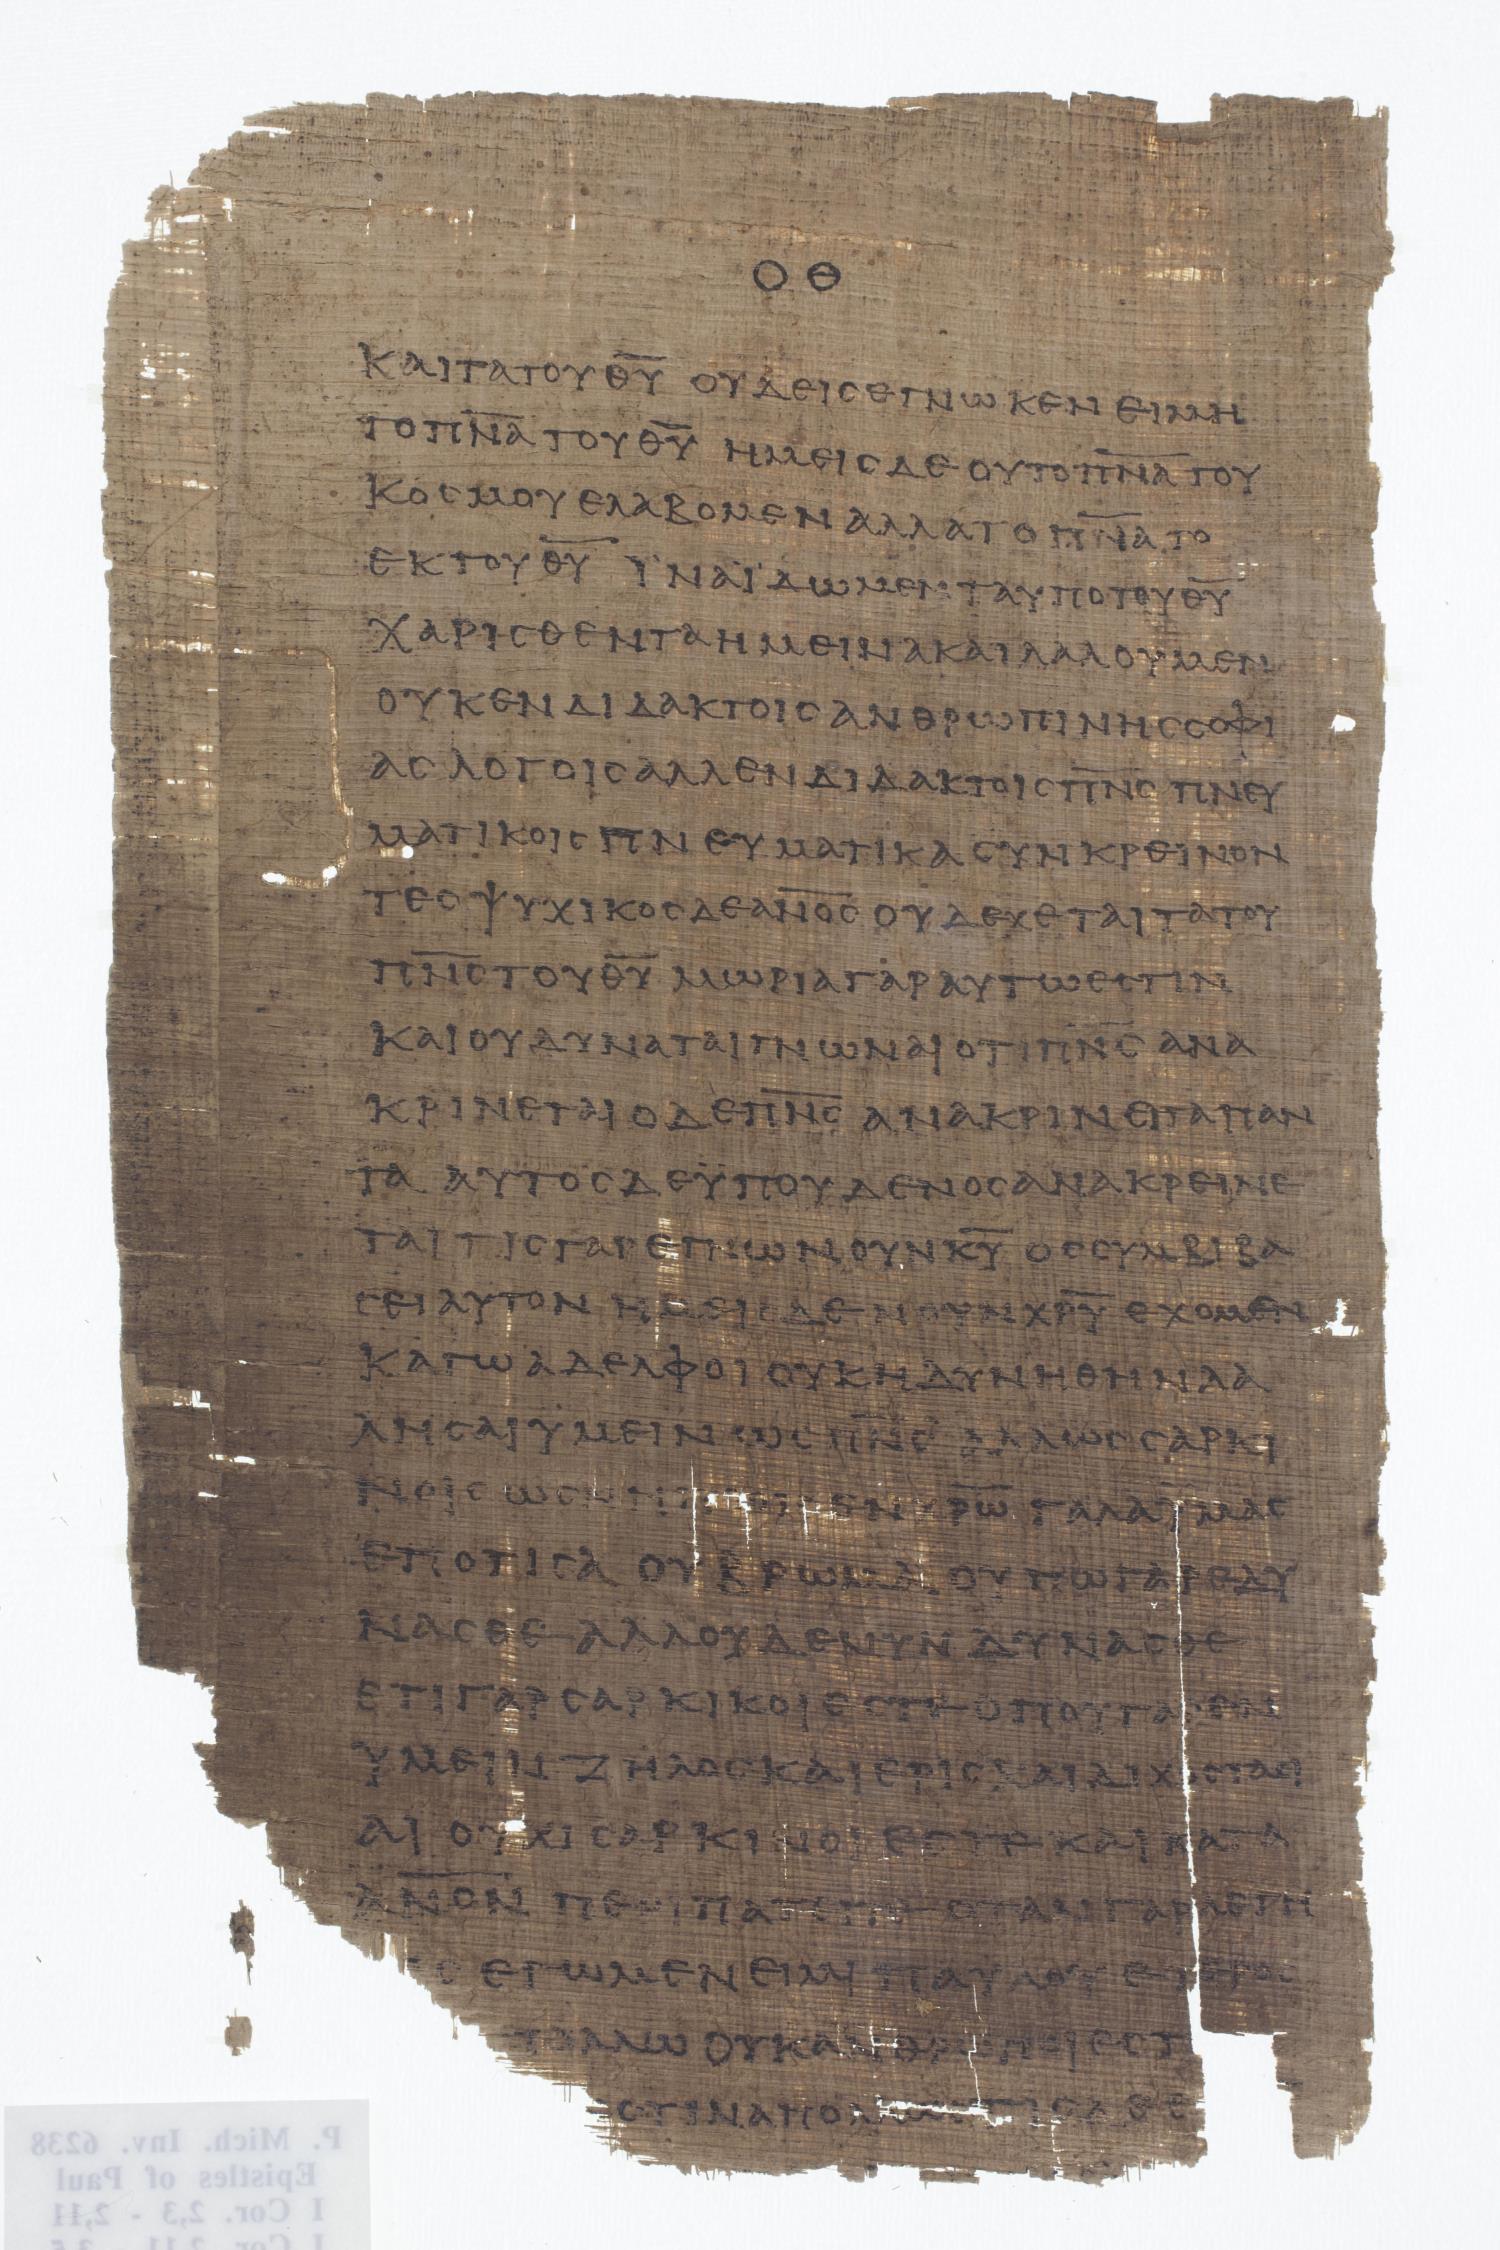 Ο Θ
ΚΑΙΤΑΤΟΥΘ̅Υ̅ ΟΥΔΕΙСΕΓΝΩΚΕΝ ΕΙΜΗ
ΤΟΠ̅Ν̅Α̅ ΤΟΥΘ̅Υ̅ ΗΜΕΙСΔΕ ΟΥΤΟΠ̅Ν̅Α̅ ΤΟΥ
ΚΟСΜΟΥ ΕΛΑΒΟΜΕΝ ΑΛΛΑΤΟ Π̅Ν̅Α̅ ΤΟ
ΕΚΤΟΥ Θ̅Υ̅ ΪΝΑΪΔΩΜΕΝ ΤΑΥΠΟΤΟΥΘ̅Υ̅
ΧΑΡΙСΘΕΝΤΑΗΜΕΙΝΑΚΑΙΛΑΛΟΥΜΕΝ
ΟΥΚΕΝΔΙΔΑΚΤΟΙСΑΝΘΡΩΠΙΝΗССΟΦΙ
ΑСΛΟΓΟΙСΑΛΛΕΝΔΙΔΑΚΤΟΙСΠ̅Ν̅С̅ ΠΝΕΥ
ΜΑΤΙΚΟΙСΠΝΕΥΜΑΤΙΚΑСΥΝΚΡΕΙΝΟΝ
ΤΕСΨΥΧΙΚΟСΔΕΑ̅Ν̅Ο̅С̅ ΟΥΔΕΧΕΤΑΙΤΑΤΟΥ
Π̅Ν̅С̅ΤΟΥΘ̅Υ̅ ΜΩΡΙΑΓΑΡΑΥΤΩΕСΤΙΝ
ΚΑΙΟΥΔΥΝΑΤΑΙΓΝΩΝΑΙΟΤΙΠ̅Ν̅С̅ ΑΝΑ
ΚΡΙΝΕΤΑΙΟΔΕΠ̅Ν̅С̅ ΑΝΑΚΡΙΝΕΙΤΑΠΑΝ
ΤΑ ΑΥΤΟСΔΕΫΠΟΥΔΕΝΟСΑΝΑΚΡΕΙΝΕ
ΤΑΙΤΙСΓΑΡΕΓΝΩΝΟΥΝΚ̅Υ̅ ΟССΥΜΒΙΒΑ
СΕΙΑΥΤΟΝ ΗΜΕΙСΔΕΝΟΥΝΧ̅Ρ̅Υ̅ ΕΧΟΜΕΝ
ΚΑΓΩΑΔΕΛΦΟΙ ΟΥΚΗΔΥΝΗΘΗΝΛΑ
ΛΗСΑΙΥΜΕΙΝ ΩСΠ̅Ν̅С̅ ΑΛΛΩССΑΡΚΙ
ΝΟΙСΩСΝΗΠΙΟΙСΕΝΧ̅Ρ̅Ω̅ ΓΑΛΑΫΜΑС
ΕΠΟΤΙСΑ ΟΥΒΡΩΜΑ ΟΥΠΩΓΑΡΕΔΥ
ΝΑСΘΕ ΑΛΛΟΥΔΕΝΥΝ ΔΥΝΑСΘΕ
ΕΤΙΓΑΡСΑΡΚΙΚΟΙΕСΤΕ ΟΠΟΥΓΑΡΕΝ
ΥΜΕΙΝ ΖΗΛΟСΚΑΙΕΡΙСΚΑΙΔΙΧΟСΤΑСΙ
ΑΙ ΟΥΧΙСΑΡΚΙΝΟΙΕСΤΕ ΚΑΙΚΑΤΑ
Α̅Ν̅Ο̅Ν̅ ΠΕΡΙΠΑΤΕΙΤΕ ΟΤΑΝΓΑΡΛΕΓΗ
С ΕΓΩΜΕΝ ΕΙΜΙ ΠΑΥΛΟΥ ΕΤΕΡΟС
ΤΑΛΛΩ ΟΥΚΑΝΘΡΩΠΟΙΕСΤ
СΤΙΝΑΠΟΛΛΩСΤΙΕ
P. Mich. Inv. 6238
Epistles of Paul
I Cor. 2,3 - 2,11